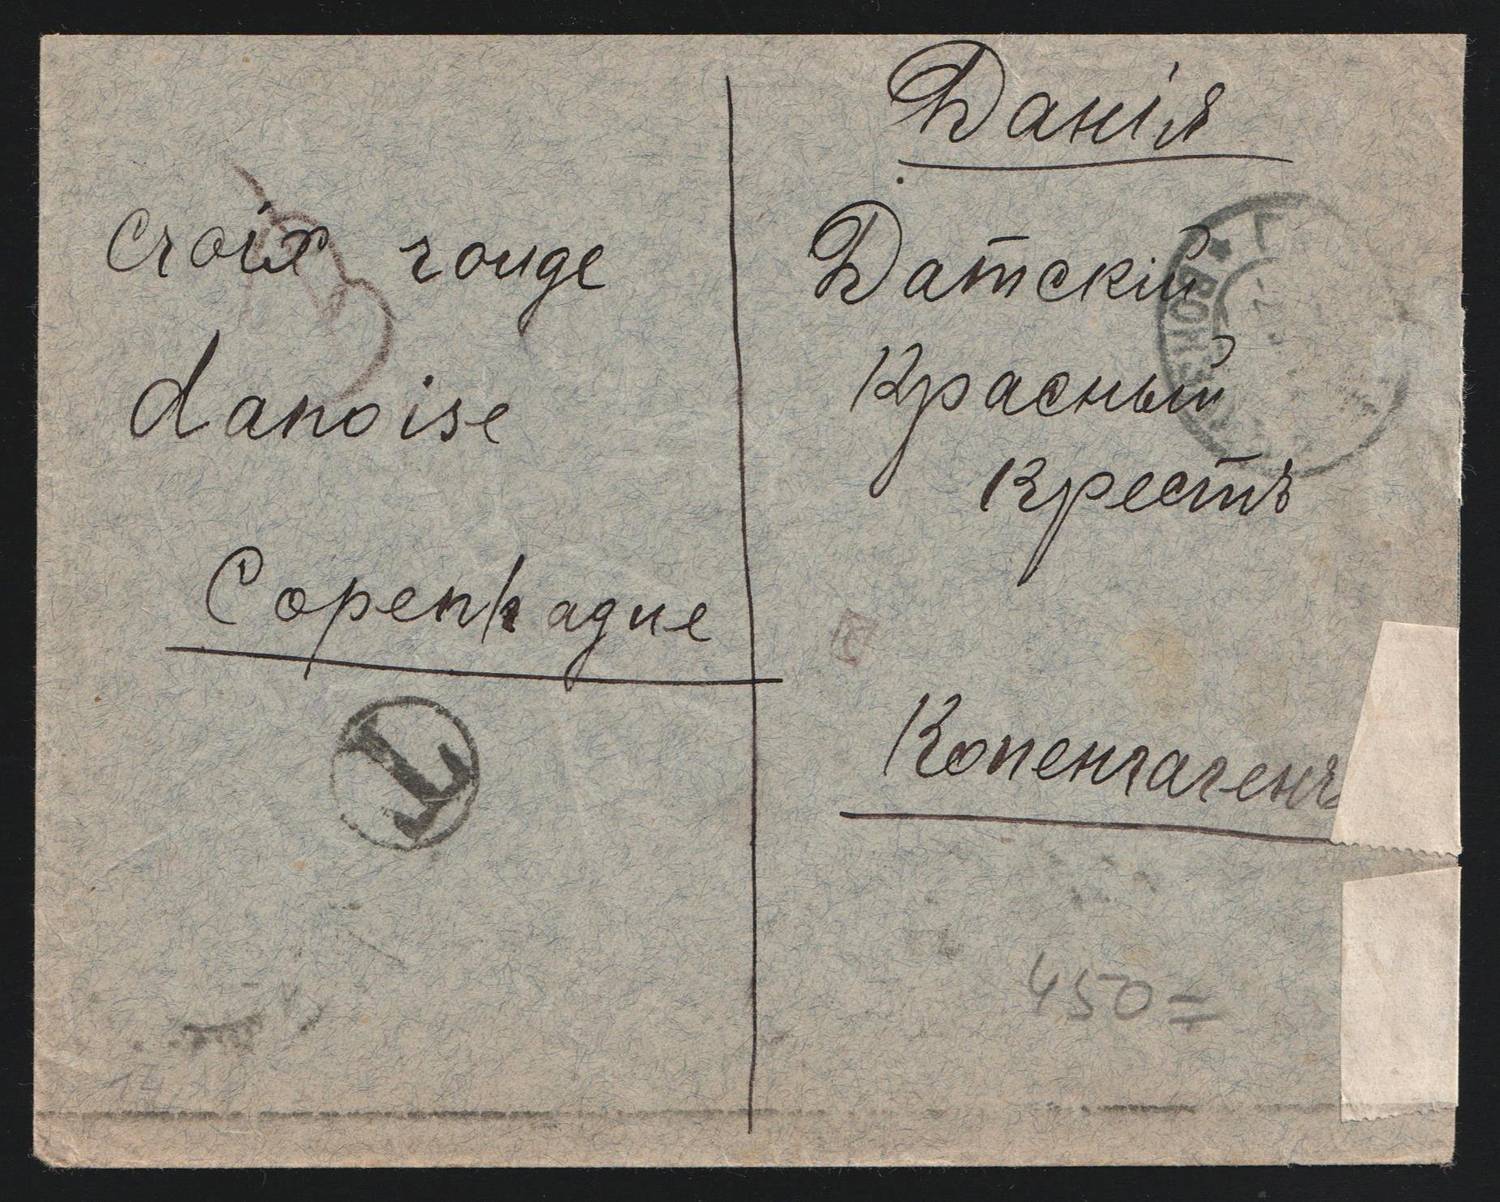 croix rouge
danoise
Copenhague
T
Данія
Датскій
Красный
Крестъ
Копенгагенъ
450=